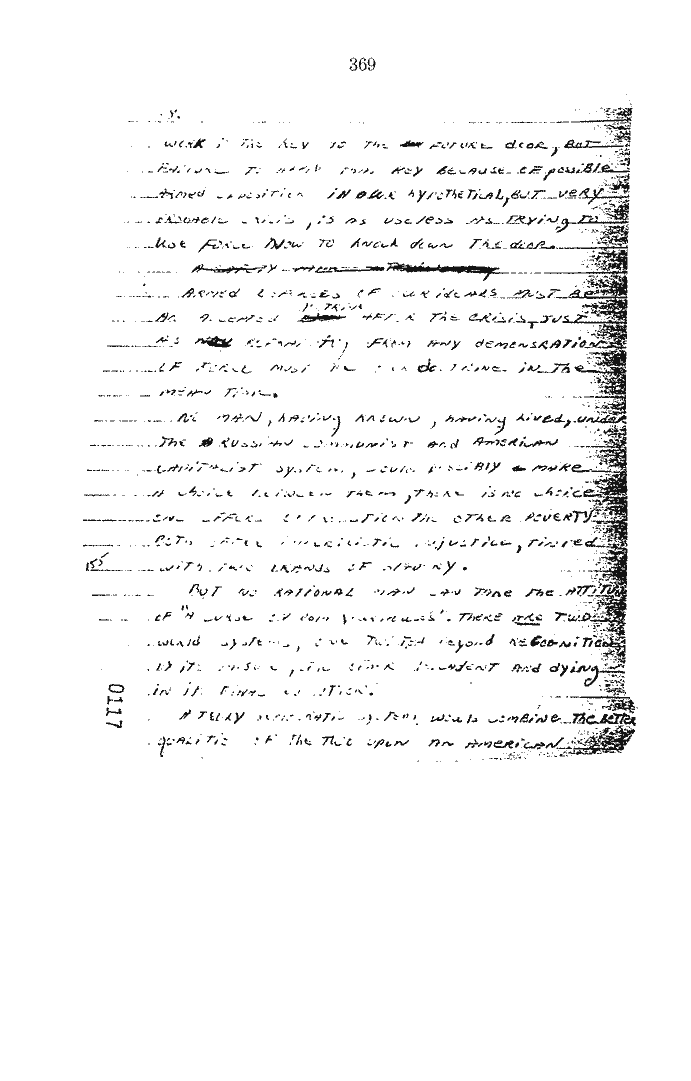 369
WORK IS THE KEY TO THE FUTURE door, BUT
FAILURE TO KEY BECAUSE OF possible
ARMED OPPOSITION IN OUR hypothetical, BUT VERY
, IS AS USELESS AS TRYING TO
USE FORCE NOW TO knock down THE door.
ARMED OF OUR MUST BE
AN ACCEPTED DOCTRINE AFTER THE CRISIS, JUST
AS FROM ANY DEMONSRATION
OF FORCE MUST BE OUR doctrine IN THE
MEAN TIME.
NO MAN, having known, having lived, under
THE RUSSIAN COMMUNIST AND AMERICAN
CAPITALIST system, could possibly MAKE
A choice BETWEEN them, THERE IS NO choice
ONE OFFERS THE OTHER POVERTY
BOTH OFFER IMPERIALISTIC injustice, TINTED
155 WITH TWO BRANDS OF slavery.
BUT NO RATIONAL MAN CAN TAKE THE ATTITUD
OF "A curse ON both ". THERE ARE TWO
WORLD systems, ONE TWISTED beyond RECOGNITION
BY ITS , THE OTHER AND dying
IN IT FINAL .
A TRULY DEMOCRATIC system would COMBINE THE BETTER
QUALITIE OF THE TWO UPON AN AMERICAN
0117